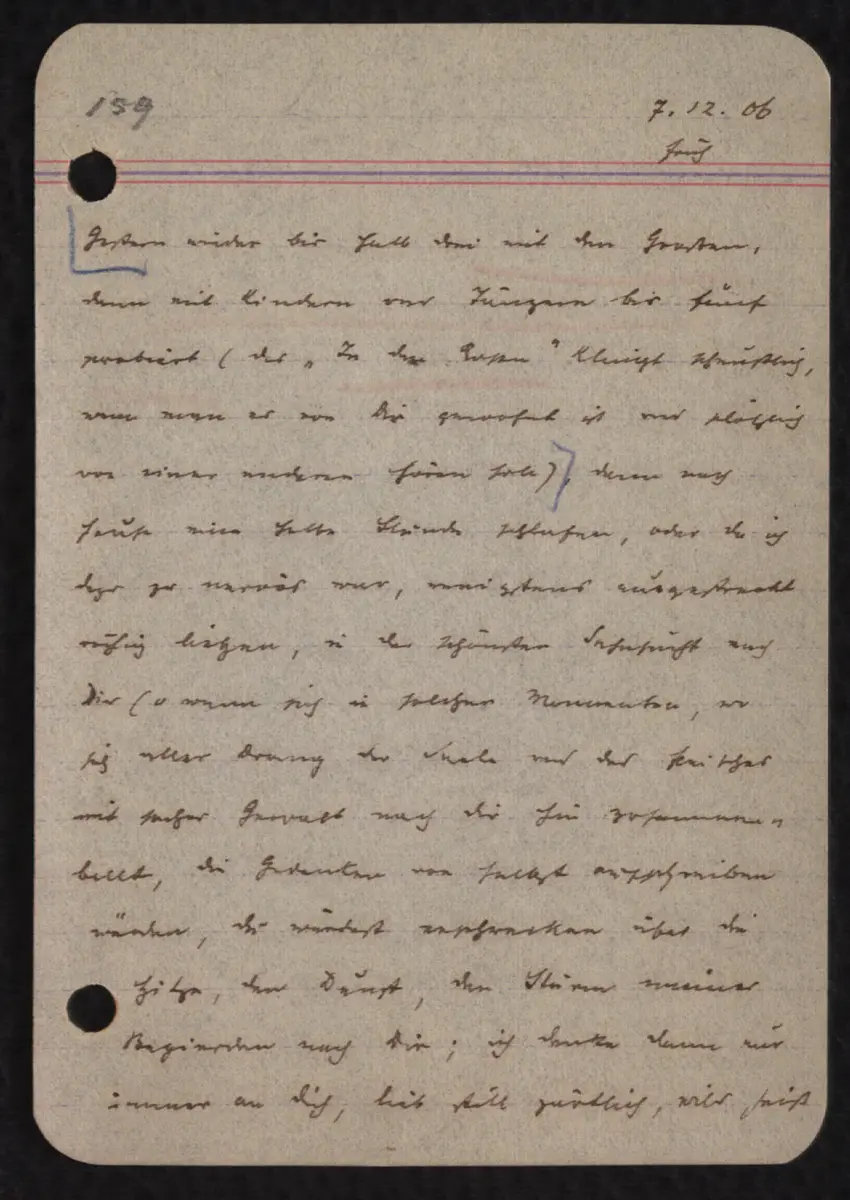 159
7. 12. 06
früh
Gestern wieder bis halb drei mit den Großen,
dann mit Kindern und Jüngern bis fünf
probiert (das „In den Rosen" klingt scheußlich,
wenn man es von Dir gewohnt ist und plötzlich
von einer anderen hören soll), dann nach
Hause eine halbe Stunde schlafen, oder da ich
dazu zu nervös war, wenigstens ausgestreckt
ruhig liegen, in der schönsten Sehnsucht nach
Dir (o wenn sich in solchen Momenten, wo
sich aller Drang der Seele und des Fleisches
mit solcher Gewalt nach dir hin zusammen-
ballt, die Gedanken von selbst aufschreiben
würden, du würdest erschrecken über die
Hitze, den Dunst, den Sturm meiner
Begierden nach Dir; ich denke dann nur
immer an Dich, bis still zärtlich, wild heiß